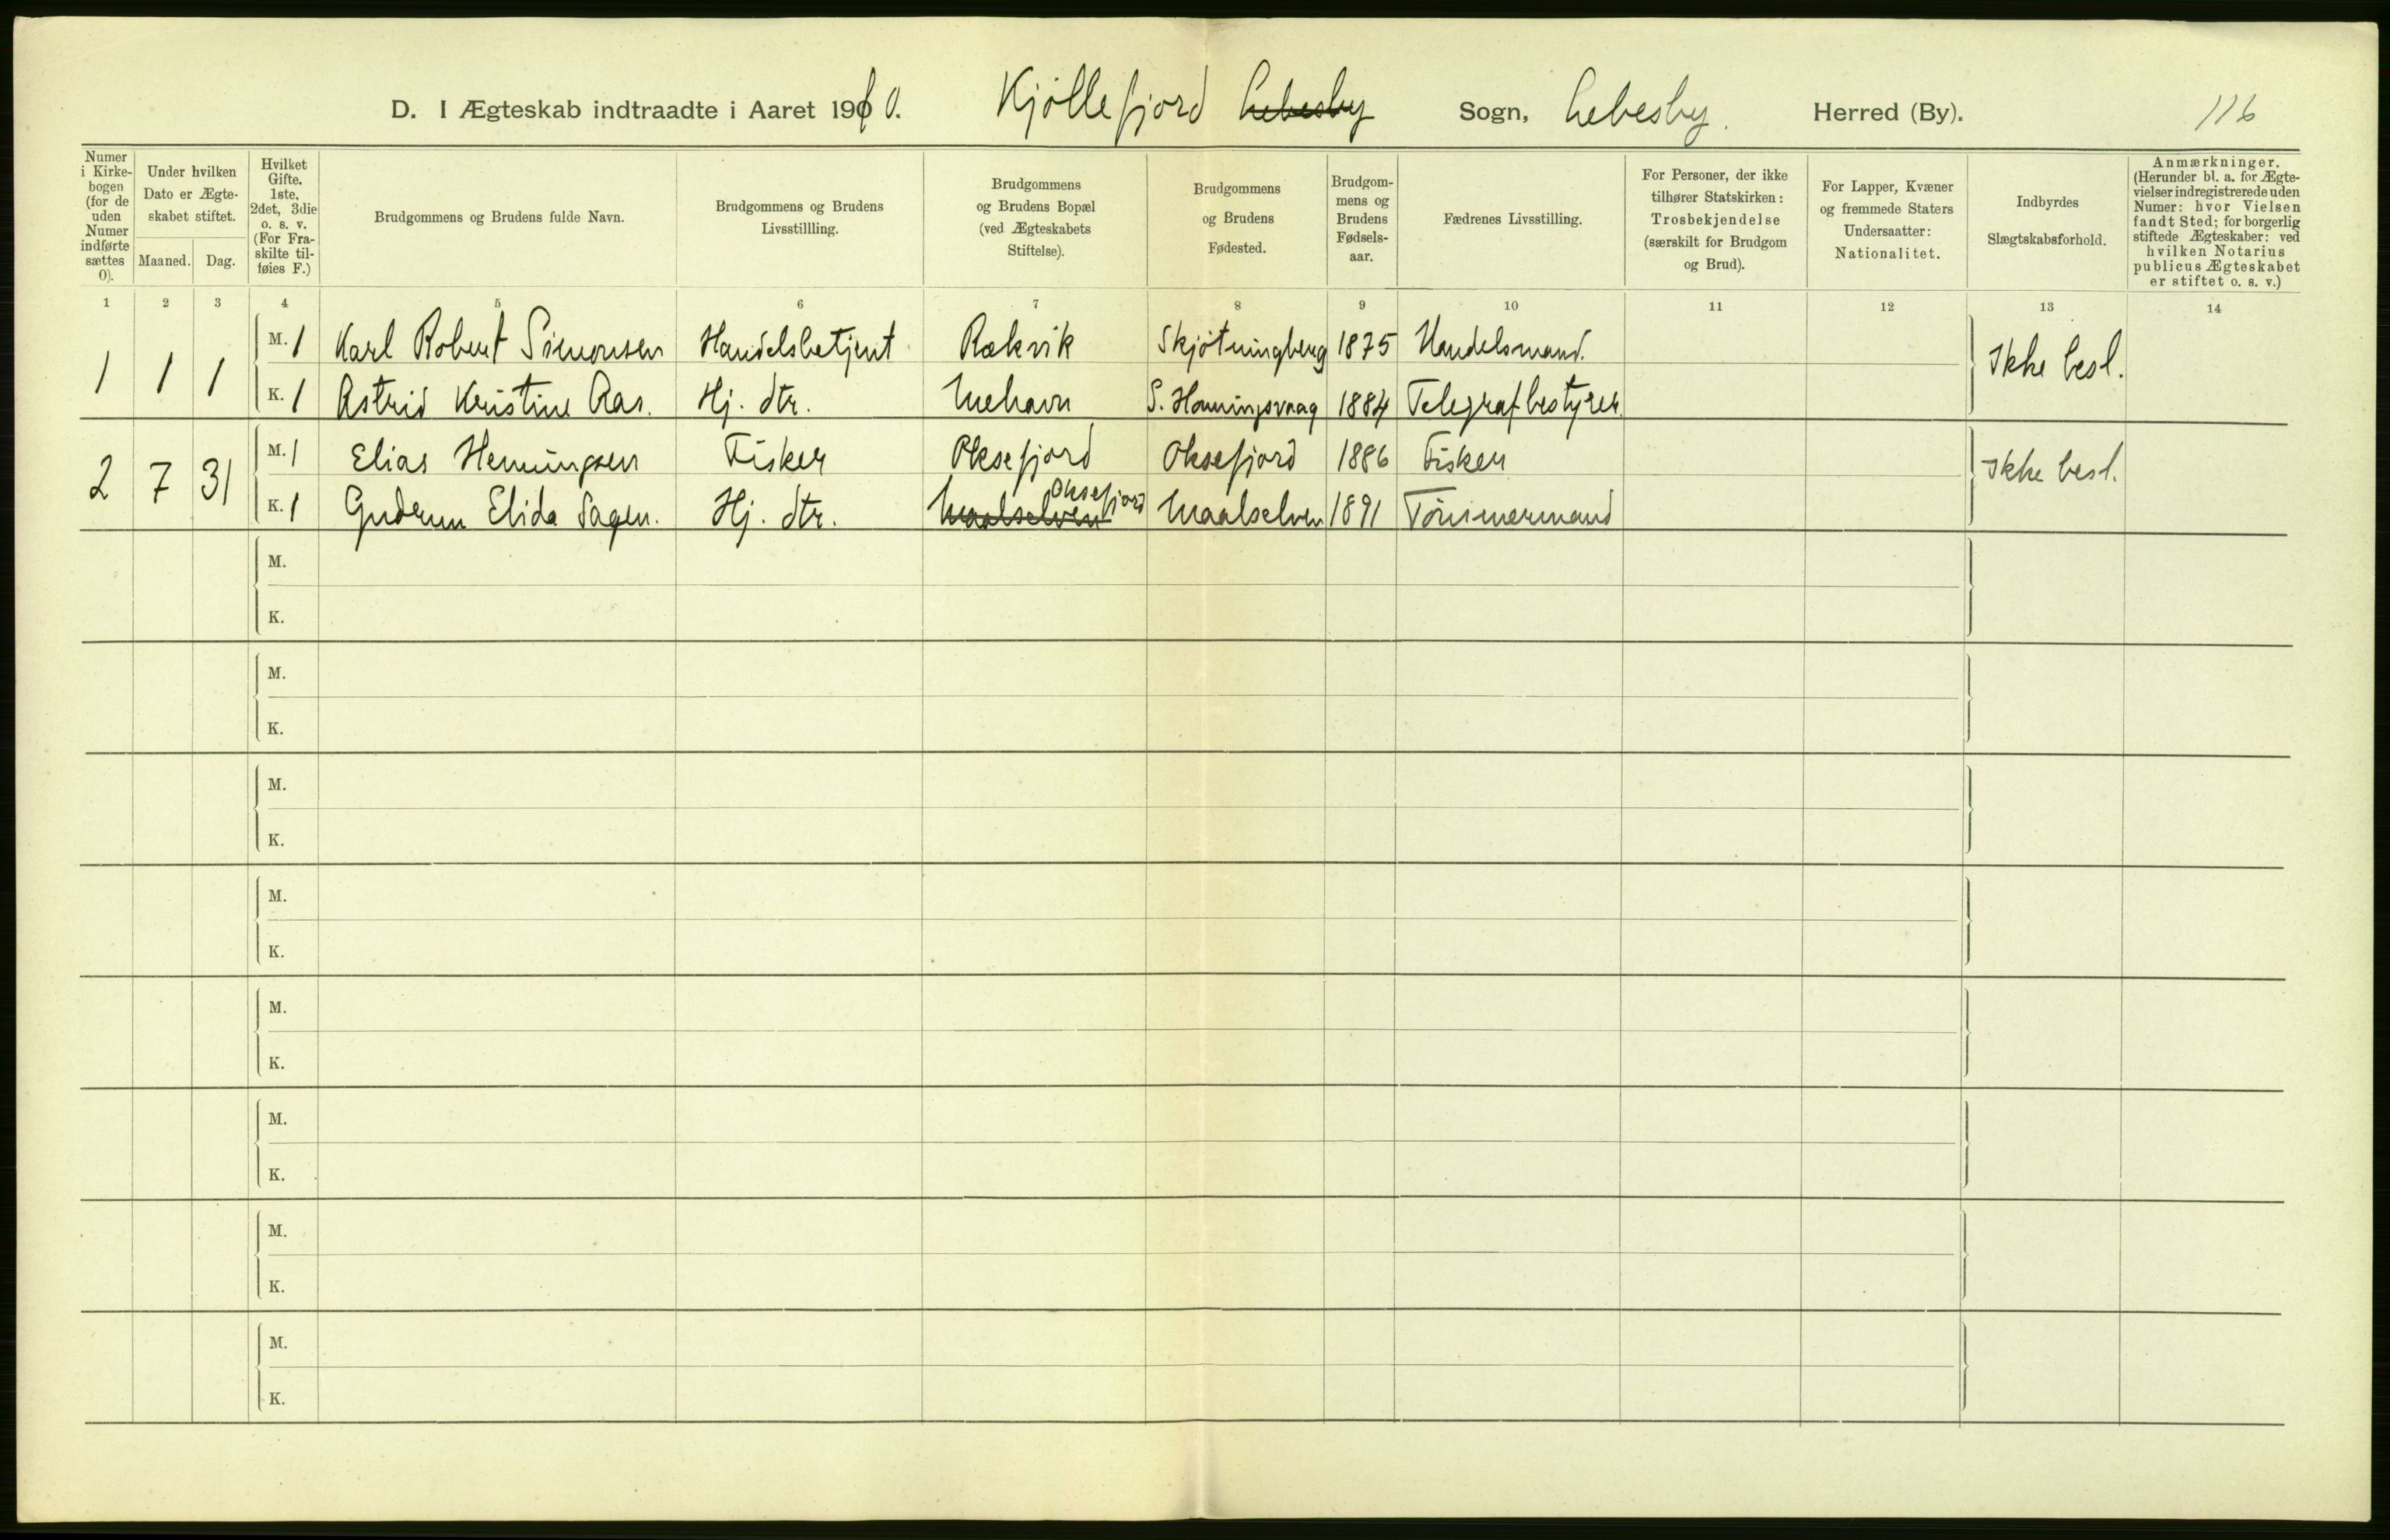 D. I Ægteskab indtraadte i Aaret 1910. Kjøllefjord Lebesby Sogn, Lebesby. Herred (By). 116
Numer i Kirke-bogen (for de uden Numer indførte sættes 0).
Under hvilken Dato er Ægte-skabet stiftet.
Maaned. Dag.
Hvilket Gifte. 1ste, 2det, 3die o. s. v. (For Fra-skilte til-føies F.)
Brudgommens og Brudens fulde Navn.
Brudgommens og Brudens Livsstillling.
Brudgommens og Brudens Bopæl (ved Ægteskabets Stiftelse).
Brudgommens og Brudens Fødested.
Brudgom-mens og Brudens Fødsels-aar.
Fædrenes Livsstilling.
For Personer, der ikke tilhører Statskirken: Trosbekjendelse (særskilt for Brudgom og Brud).
For Lapper, Kvæner og fremmede Staters Undersaatter: Nationalitet.
Indbyrdes Slægtskabsforhold.
Anmærkninger. (Herunder bl. a. for Ægte-vielser indregistrerede uden Numer: hvor Vielsen fandt Sted; for borgerlig stiftede Ægteskaber: ved hvilken Notarius publicus Ægteskabet er stiftet o. s. v.)
1 2 3 4 5 6 7 8 9 10 11 12 13 14
1 1 1 M. 1 Karl Robert Simonsen Handelsbetjent Rækvik Skjøtningberg 1875 Handelsmand. Ikke besl.
K. 1 Astrid Kristine Aas. Hj. dtr. Mehavn S. Honningsvaag 1884 Telegrafbestyrer
2 7 31 M. 1 Elias Henningsen Fisker Oksefjord Oksefjord 1886 Fisker Ikke besl.
K. 1 Gudrun Elida Sagen. Hj. dtr. Maalselven Oksefjord Maalselven 1891 Tømmermand
M.
K.
M.
K.
M.
K.
M.
K.
M.
K.
M.
K.
M.
K.
M.
K.